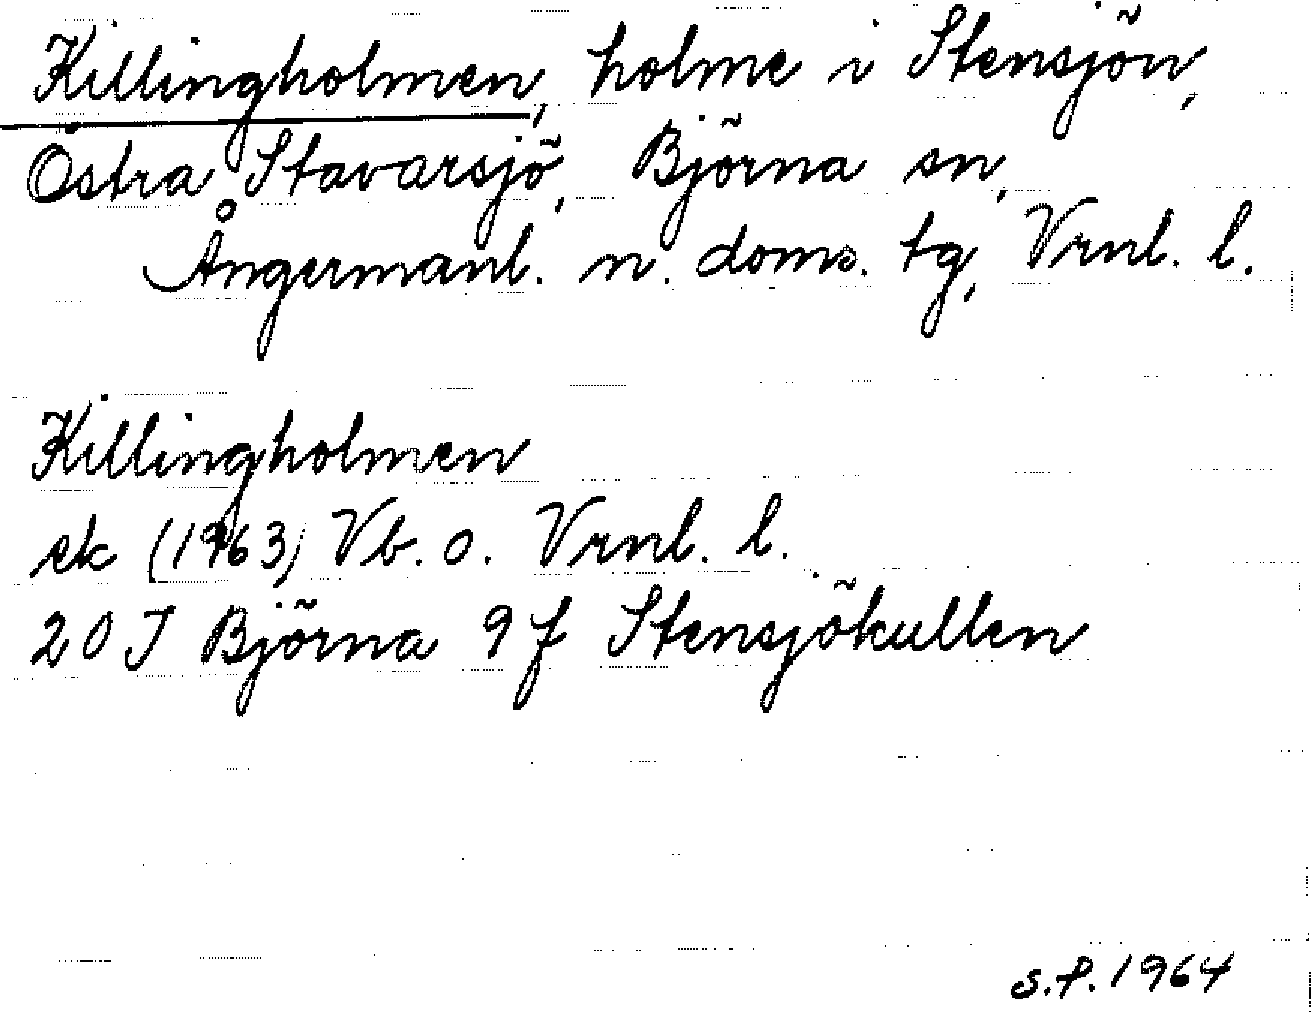 Killingholmen, holme i Stensjön,
Östra Stavarsjö, Björna sn,
Ångermanl. n. doms. tg, Vrnl. l.
Killingholmen
ek (1963) Vb. o. Vrnl. l.
20 J Björna 9 f Stensjökullen
S.P. 1964